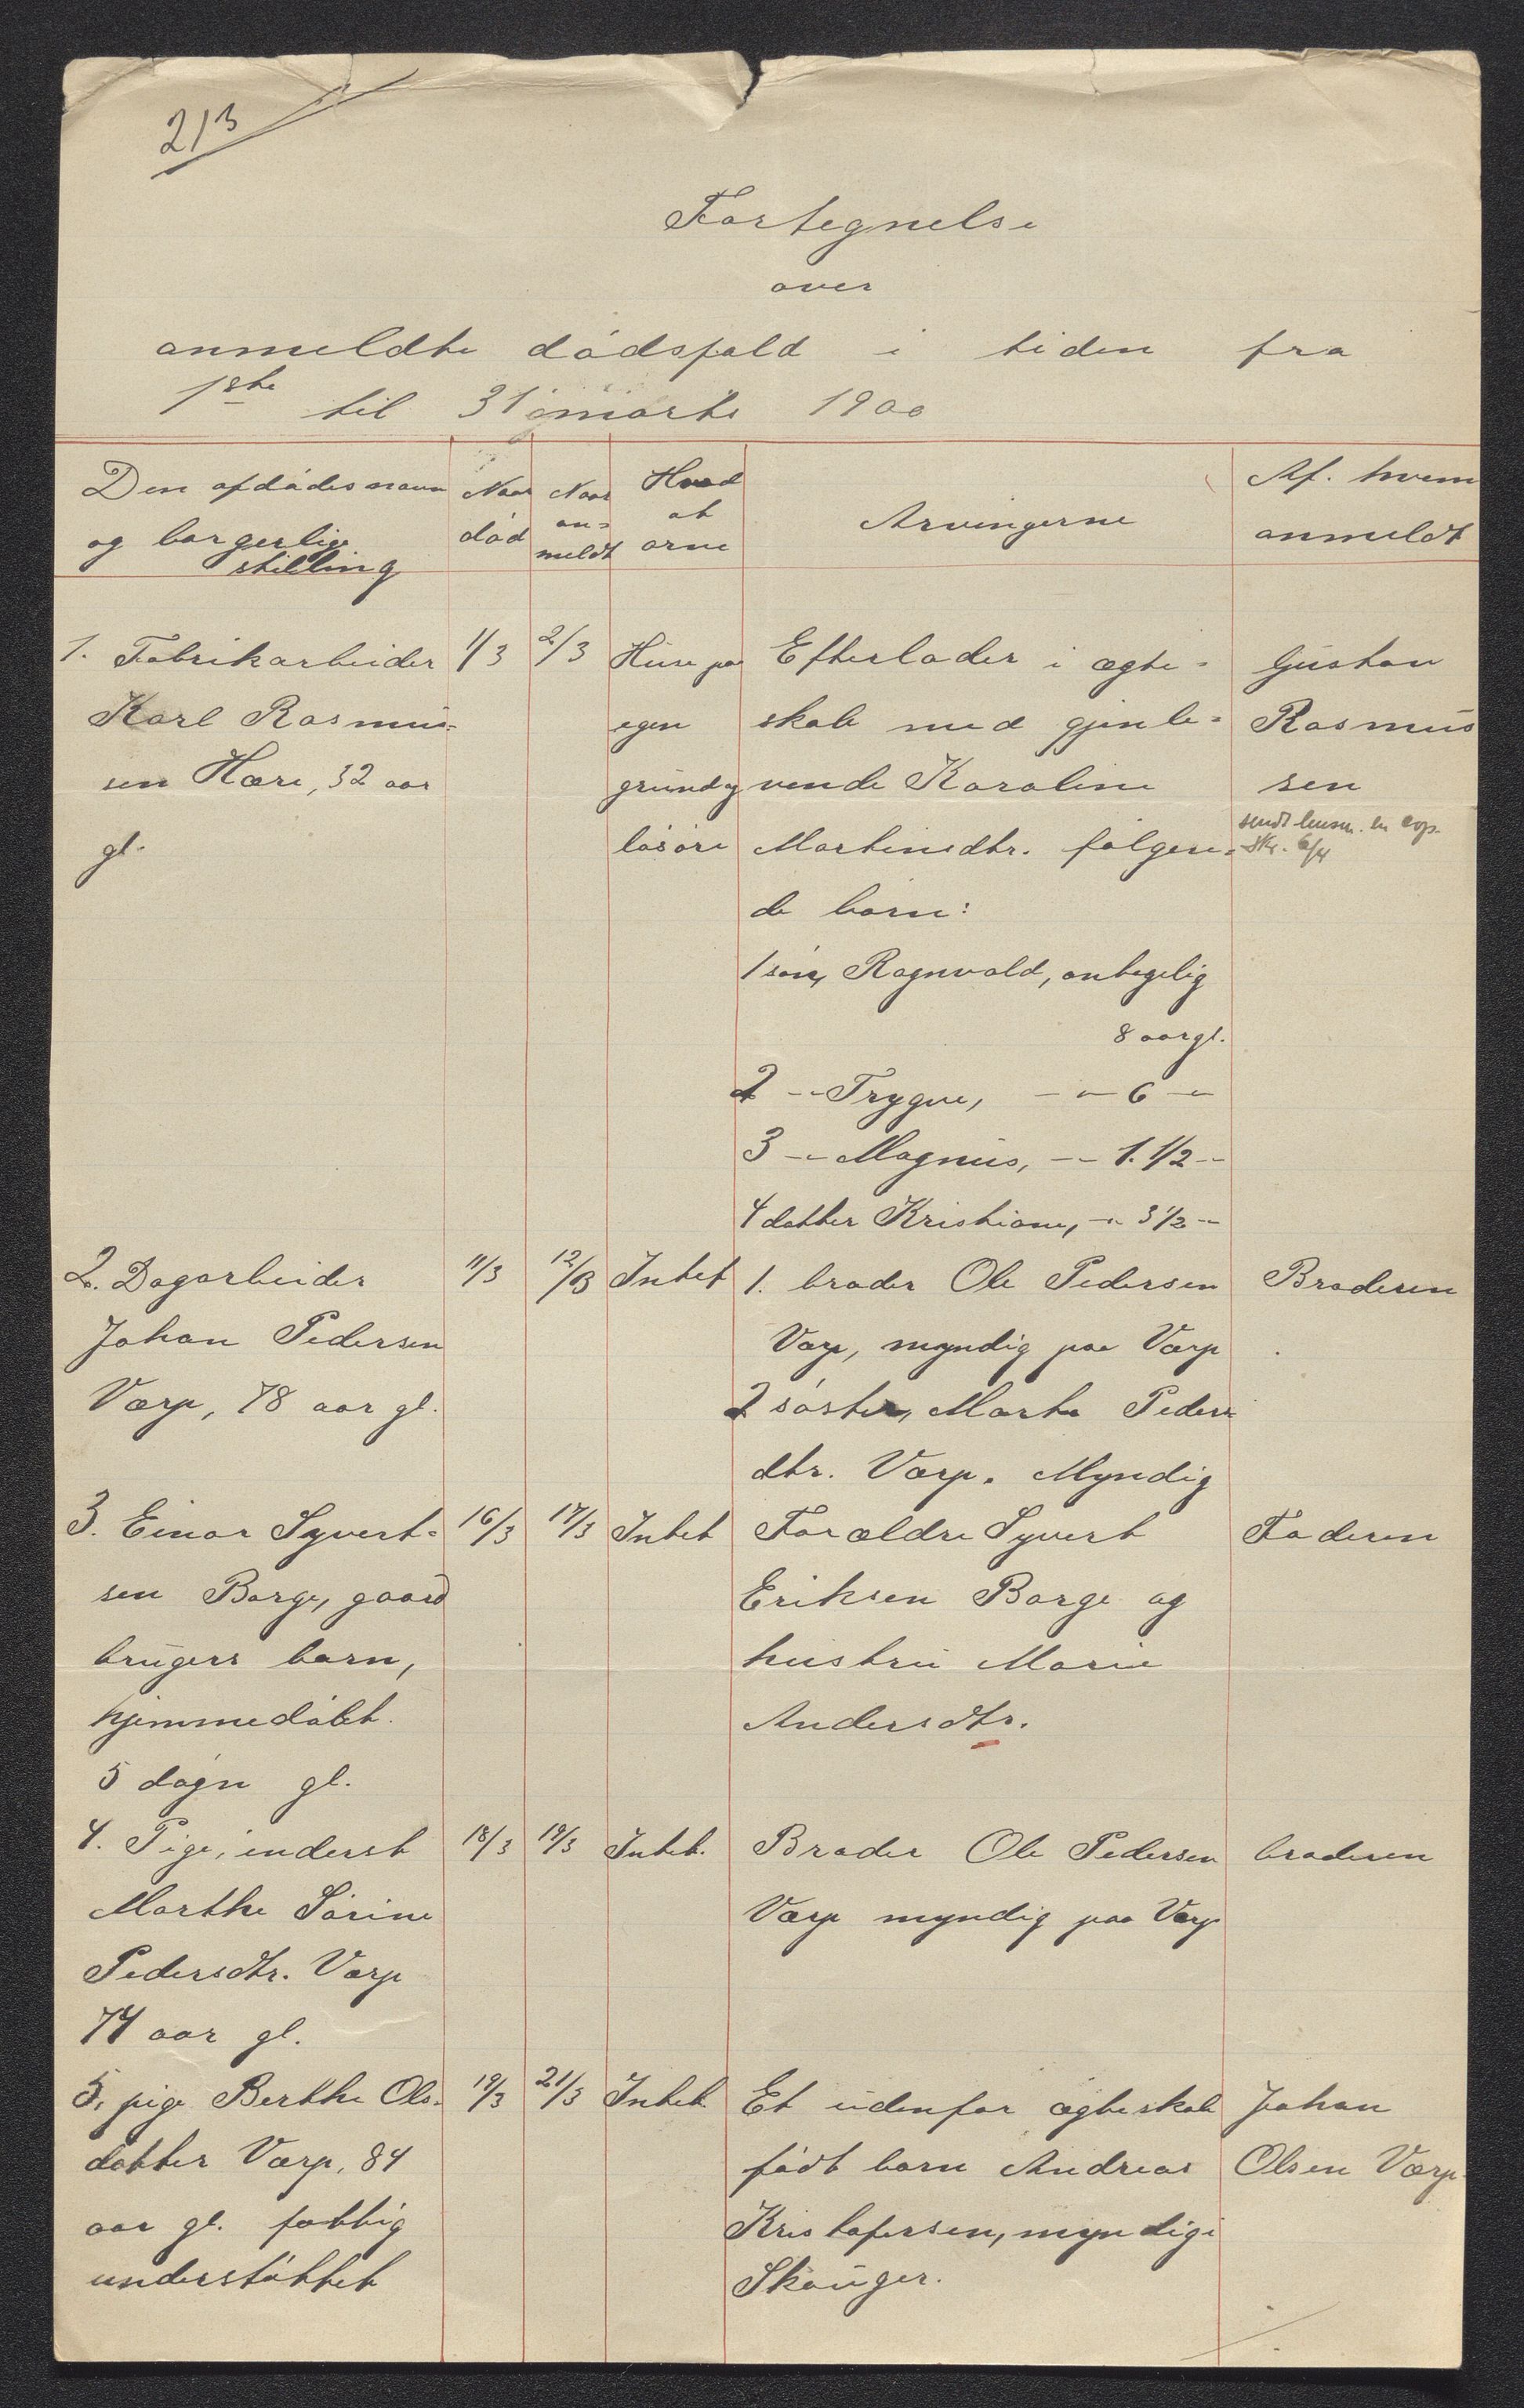 213
Fortegnelse
over
anmeldte dødsfald i tiden fra
1ste til 31 marts 1900
Den afdødes navn
og borgerlige
stilling
Naar
død
Naar
an-
meldt
Hvad
at
arve
Arvingerne
Af. hvem
anmeldt
1. Fabrikarbeider
Karl Rasmus-
sen Hære, 32 aar
gl.
1/3
2/3
Huse paa
egen
grund og
løsøre
Efterlader i ægte-
skab med gjenle-
vende Karoline
Martinsdtr. følgen-
de børn:
1 søn, Ragnvald, antagelig
8 aar gl.
2 -"- Trygve, -"- 6 -"-
3 -"- Magnus, -"- 1. 1/2 -"-
4 datter Kristiane, -"- 3 1/2 -"-
Gustav
Rasmus
sen
sendt lensm. en
skr. 6/4
2. Dagarbeider
Johan Pedersen
Varp, 78 aar gl.
11/3
12/3
Intet
1. broder Ole Pedersen
Varp, myndig paa Varp
2 søster, Marte Peders
dtr. Varp. Myndig
Broderen
3. Einar Syvert-
sen Borge, gaard
brugers barn,
hjemmedøbt.
5 døgn gl.
16/3
17/3
Intet
Forældre Syvert
Eriksen Borge og
hustru Marie
Andersdtr.
Faderen
4. Pige, inderst
Marthe Sørine
Pedersdtr. Varp
74 aar gl.
18/3
19/3
Intet.
Broder Ole Pedersen
Varp myndig paa Varp
broderen
5. pige Berthe Ols-
datter Varp, 84
aar gl. fattig
understøttet
19/3
21/3
Intet
Et udenfor ægteskab
født barn Andreas
Kristofersen, myndig i
Skouger.
Johan
Olsen Varp